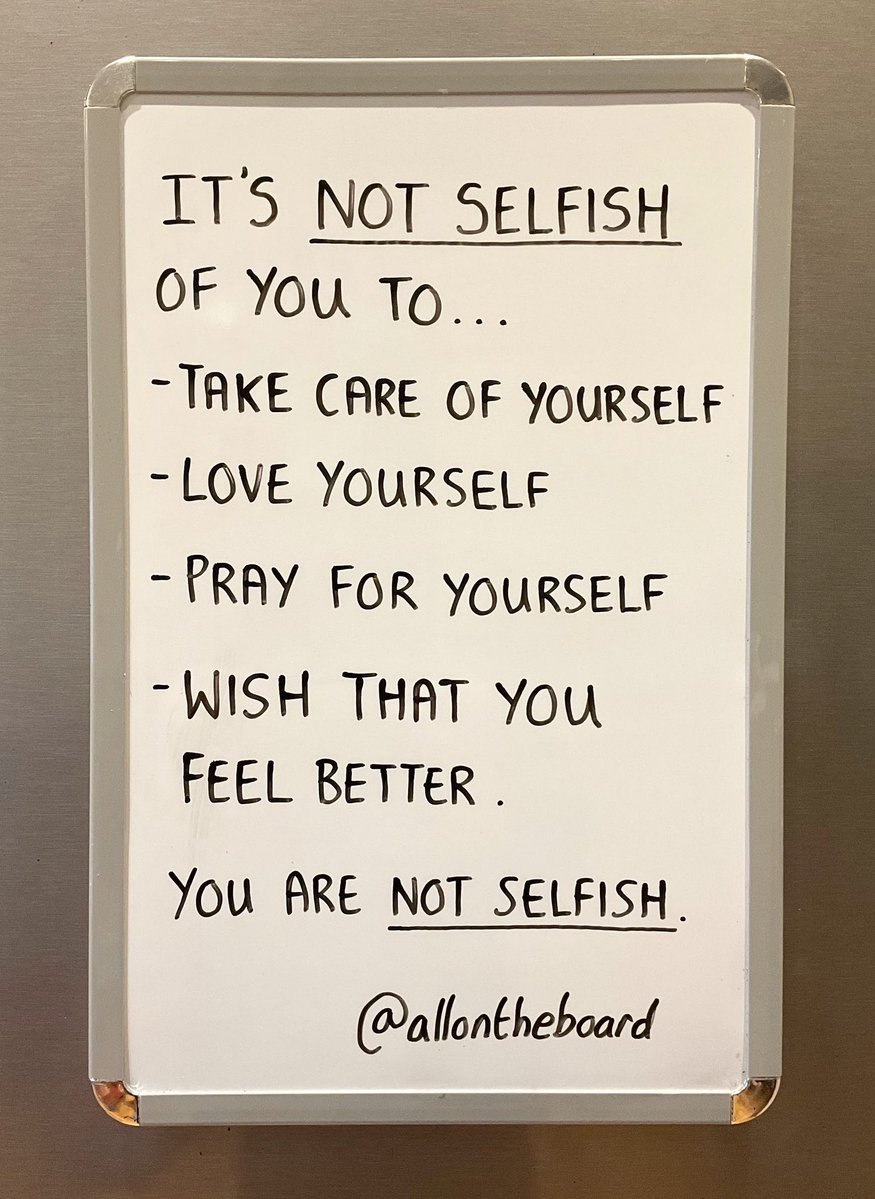 IT'S NOT SELFISH
OF YOU TO...
-TAKE CARE OF YOURSELF
-LOVE YOURSELF
-PRAY FOR YOURSELF
-WISH THAT YOU
FEEL BETTER.
YOU ARE NOT SELFISH.
@allontheboard